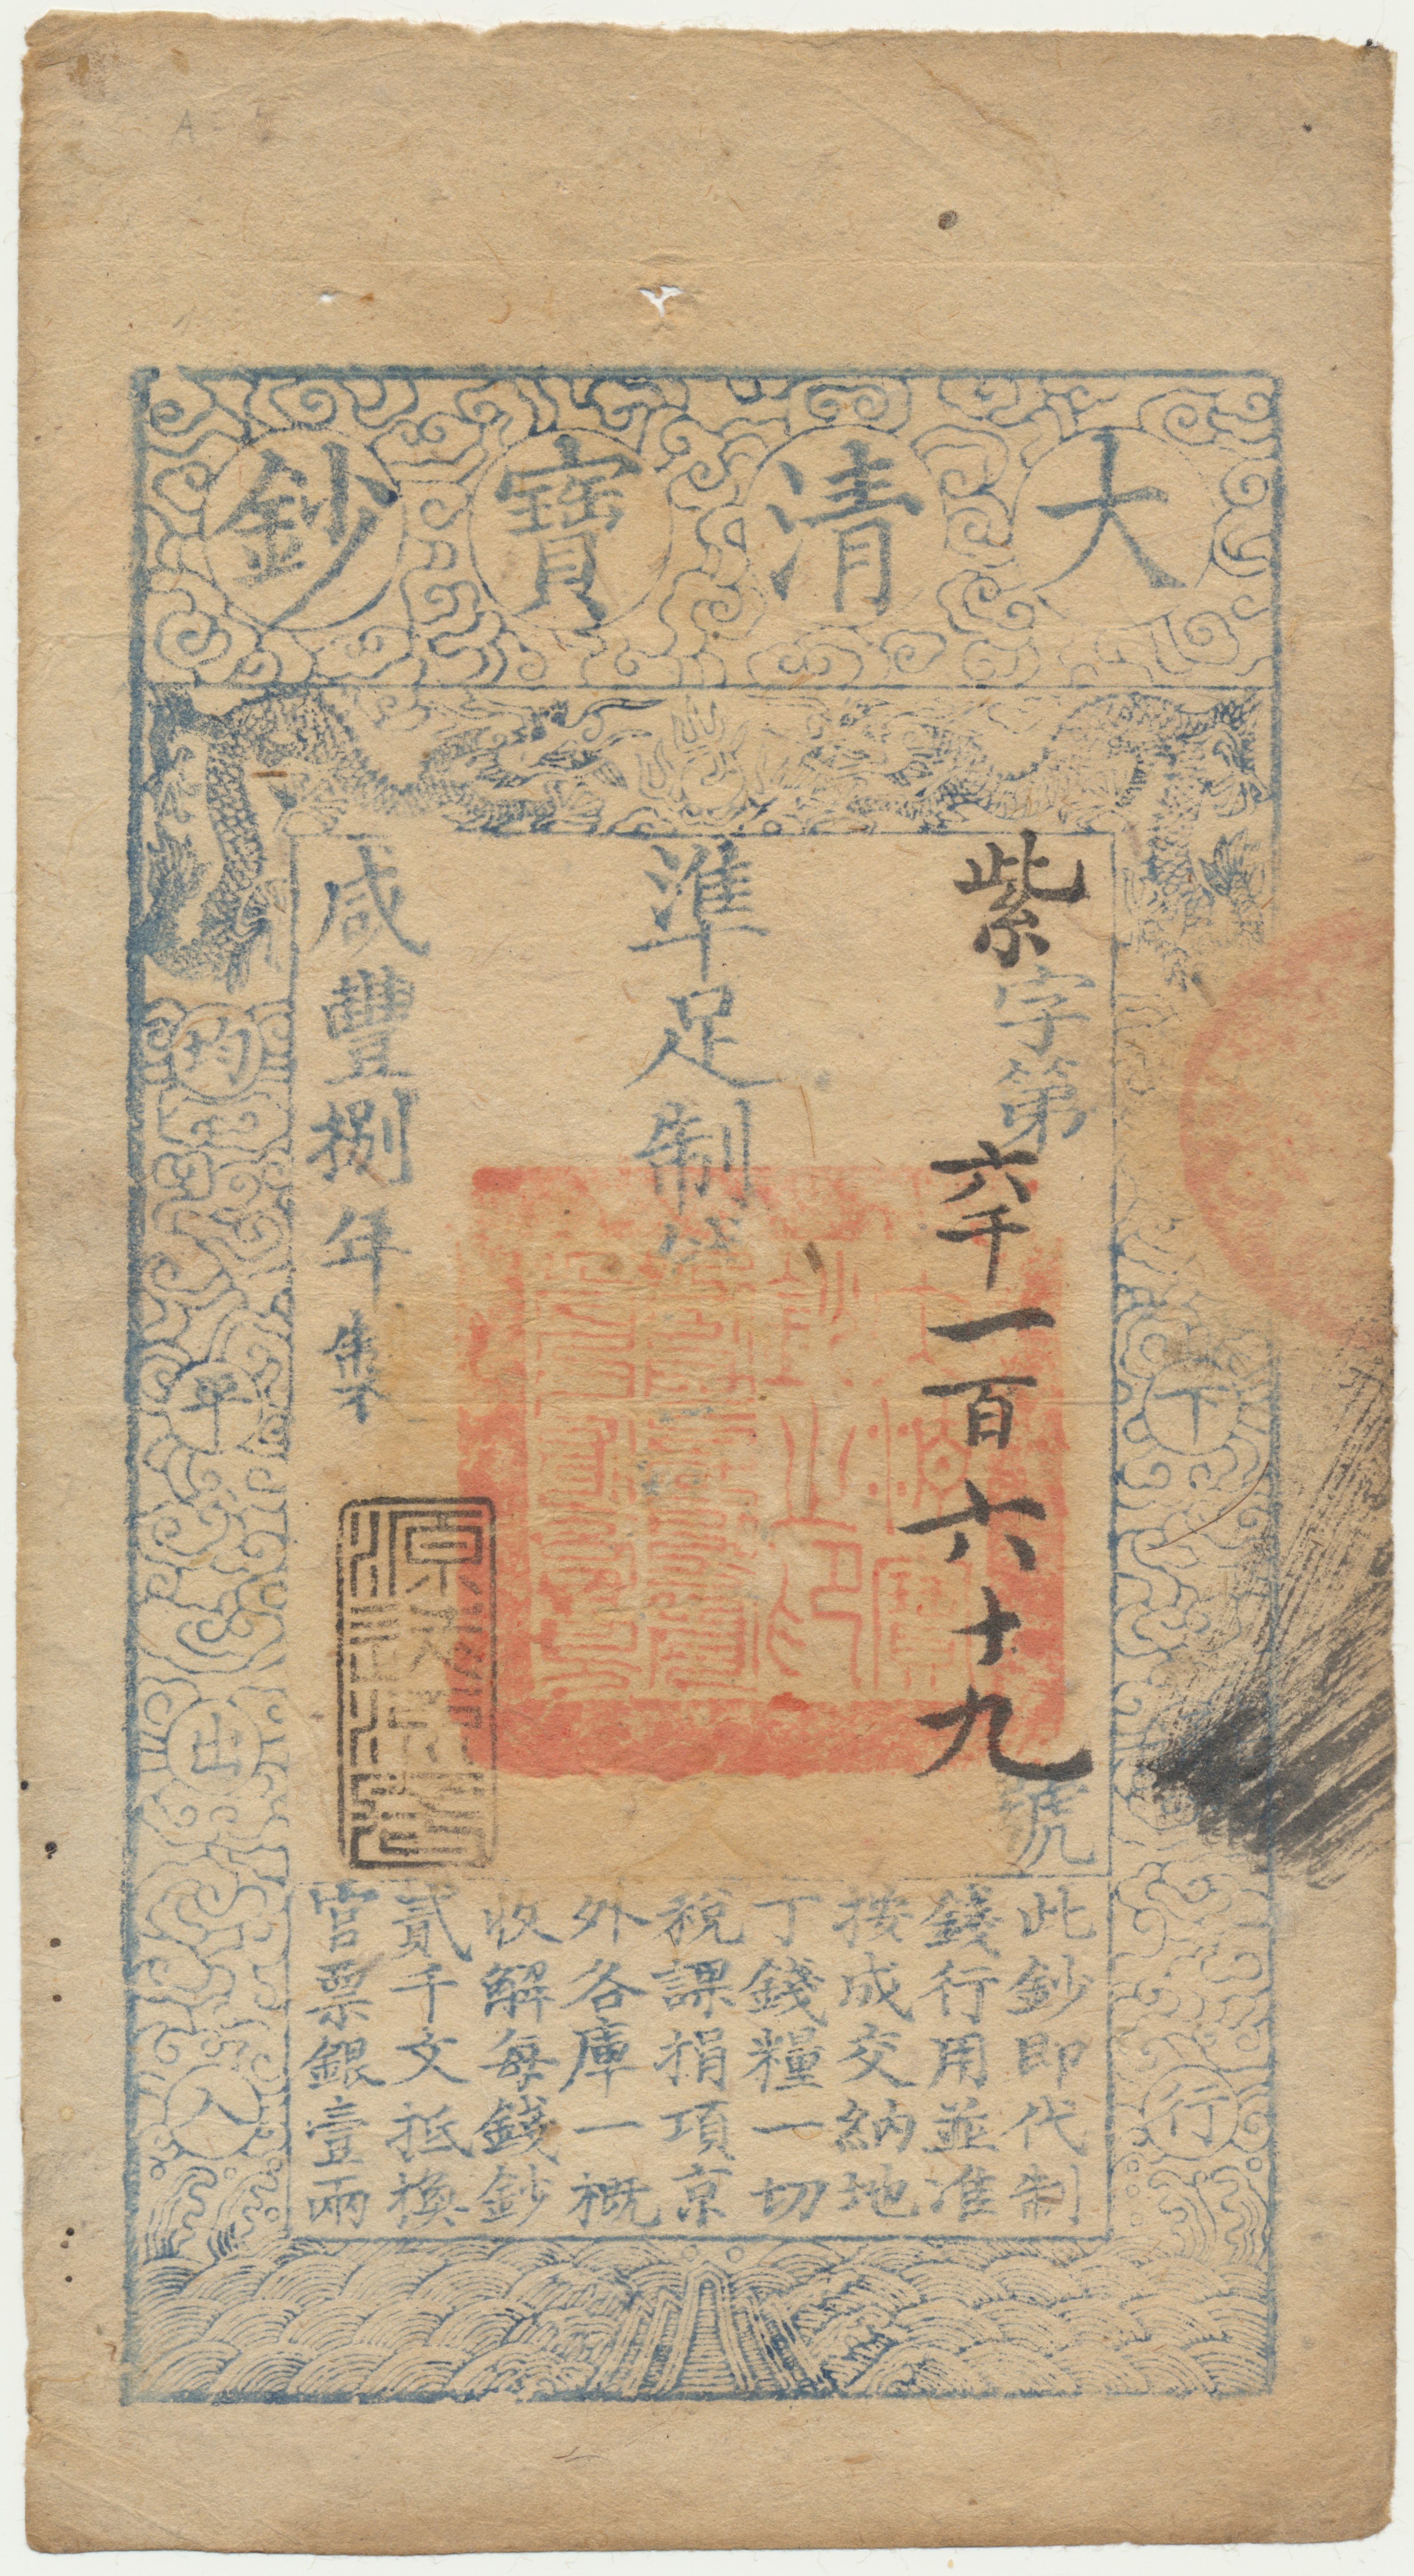 大清寶鈔
下行
均平出入
紫字第六千一百六十九號
準足制
咸豐捌年製
此鈔即代制
錢行用並准
按成交納地
丁錢糧一切
稅課捐項京
外各庫一概
收解每錢鈔
貳千文抵換
官票銀壹兩